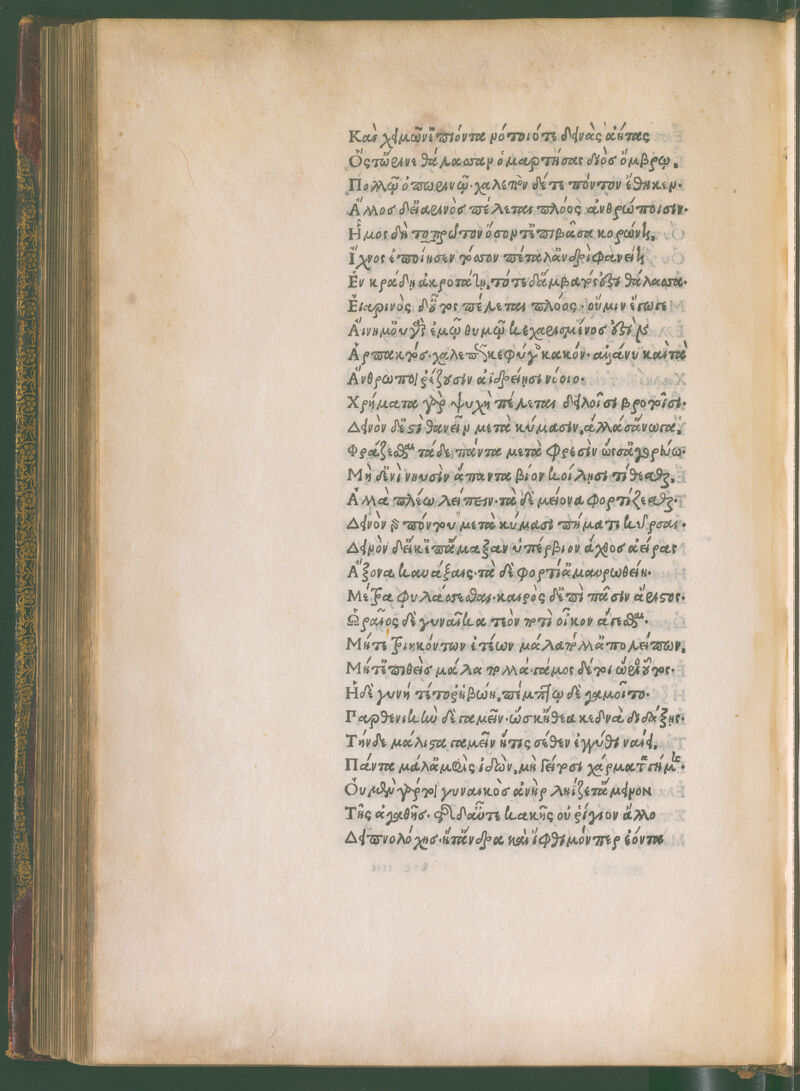 Καὶ χειμῶν' ἐπιόντα νότοιό τε δεινὰς ἀήτας
Ὅς τ' ὤρινε θάλασσαν ὁμαρτήσας διὸς ὄμβρῳ,
Πολλῷ ὀπωρινῷ· χαλεπὸν δέ τε πόντον ἔθηκεν·
Ἄλλος δ' εἰαρινὸς πέλεται πλόος ἀνθρώποισιν·
Ἦμος δὴ τοπρῶτον ὅσον τ' ἐπιβᾶσα κορώνη,
Ἴχνος ἐποίησεν τόσον πέταλ' ἀνδρὶ φανείη
Ἐν κράδῃ ἀκροτάτῃ, τότε δ' ἄμβατός ἐστι θάλασσα·
Εἰαρινὸς δ' οὗτος πέλεται πλόος· οὔ μιν ἔγωγε
Αἴνημ' οὐ γὰρ ἐμῷ θυμῷ κεχαρισμένος ἐστὶν
Ἁρπακτός· χαλεπῶς κε φύγοις κακόν· ἀλλά νυ καὶ τὰ
Ἄνθρωποι ῥέζουσιν ἀϊδρείῃσι νόοιο·
Χρήματα γὰρ ψυχὴ πέλεται δειλοῖσι βροτοῖσι·
Δεινὸν δ' ἐστὶ θανεῖν μετὰ κύμασιν, ἀλλά σ' ἄνωγα,
Φράζεσθαι τάδε πάντα μετὰ φρεσὶν ὡς ἀγορεύω·
Μὴ δ' ἐνὶ νηυσὶν ἅπαντα βίον κοίλῃσι τίθεσθαι,
Ἀλλὰ πλέω λείπειν· τὰ δὲ μείονα φορτίζεσθαι·
Δεινὸν γὰρ πόντου μετὰ κύμασι πήματι κύρσαι·
Δεινὸν δ' εἴ κ' ἐπ' ἄμαξαν ὑπέρβιον ἄχθος ἀείρας
Ἄξονα καυάξαις· τὰ δὲ φορτί' ἀμαυρωθείη·
Μέτρα φυλάσσεσθαι· καιρὸς δ' ἐπὶ πᾶσιν ἄριστος·
Ὡραῖος δὲ γυναῖκα τεὸν ποτὶ οἶκον ἄγεσθαι·
Μήτε τριηκόντων ἐτέων μάλα πόλλ' ἀπολείπων,
Μήτ' ἐπιθεὶς μάλα πολλά· γάμος δέ τοι ὥριος οὗτος·
Ἡ δὲ γυνὴ τέτορ' ἡβώη, πέμπτῳ δὲ γαμοῖτο·
Παρθενικὴν δὲ γαμεῖν· ὥς κ' ἤθεα κεδνὰ διδάξῃς·
Τὴν δὲ μάλιστα γαμεῖν ἥτις σέθεν ἐγγύθι ναίει,
Πάντα μάλ' ἀμφὶς ἰδών, μὴ γείτοσι χάρματα γήμῃς·
Οὐ μὲν γάρ τοι γυναικὸς ἀνὴρ ληΐζετ' ἄμεινον
Τῆς ἀγαθῆς· τῆς δ' αὖτε κακῆς οὐ ῥίγιον ἄλλο
Δειπνολόχης· ἥτ' ἄνδρα καὶ ἴφθιμόν περ ἐόντα